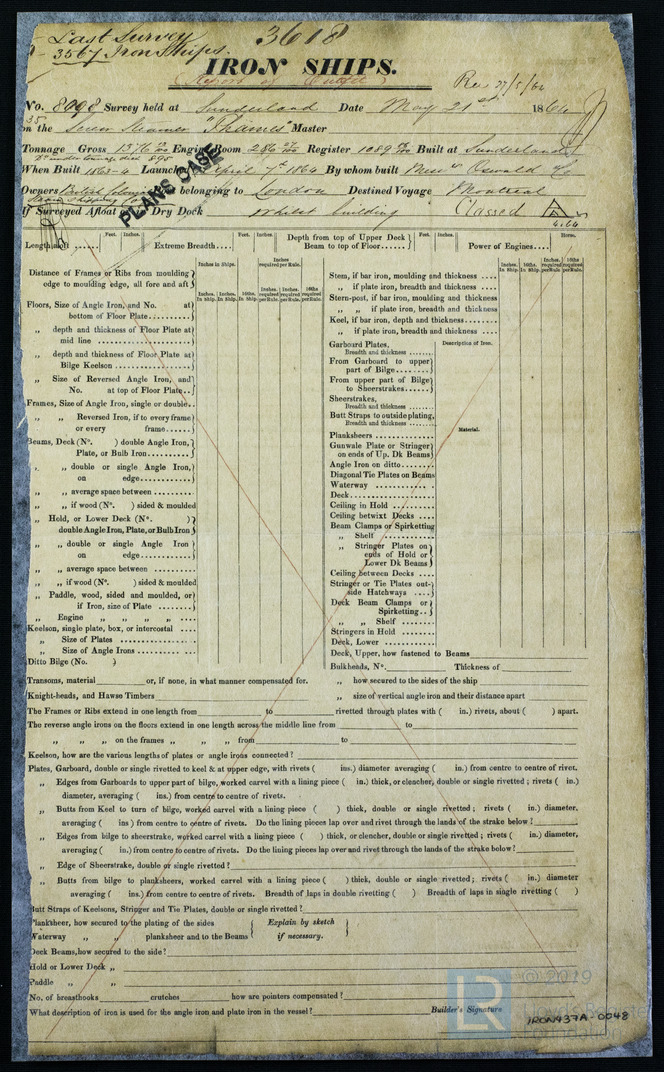 Last Survey 3618
3567 Iron Ships.
IRON SHIPS.
(Report of Outfit)
Rec 27/5/64
No. 8098 Survey held at Sunderland Date May 21st 1864
on the Screw Steamer "Thames" Master
Tonnage Gross 1376 Engine Room 286 Register 1089 Built at Sunderland
When Built 1863-4 Launched April 7th 1864 By whom built Messrs Oswald & Co
Owners British Colonial Port belonging to London Destined Voyage Montreal
Steam Shipping Co
If Surveyed Afloat or in Dry Dock whilst building Classed A
4.64
PLANS CASE
Length aloft ...... Feet. Inches. Extreme Breadth.. Feet. Inches. Depth from top of Upper Deck Beam to top of Floor...... Feet. Inches. Power of Engines.... Horse.
Distance of Frames or Ribs from moulding edge to moulding edge, all fore and aft
Inches in Ships. Inches required per Rule.
In. In Ship. In. In Ship. 16ths In Ship. Inches required per Rule. Inches required per Rule. 16ths required per Rule.
Floors, Size of Angle Iron, and No. at bottom of Floor Plate
„ depth and thickness of Floor Plate at mid line
„ depth and thickness of Floor Plate at Bilge Keelson
„ Size of Reversed Angle Iron, and No. at top of Floor Plate..
Frames, Size of Angle Iron, single or double..
„ „ Reversed Iron, if to every frame or every frame......
Beams, Deck (No. ) double Angle Iron, Plate, or Bulb Iron
„ „ double or single Angle Iron, on edge
„ „ average space between
„ „ if wood (No. ) sided & moulded
„ Hold, or Lower Deck (No. ) double Angle Iron, Plate, or Bulb Iron
„ „ double or single Angle Iron on edge
„ „ average space between
„ „ if wood (No. ) sided & moulded
„ Paddle, wood, sided and moulded, or if Iron, size of Plate
„ Engine „ „ „ „
Keelson, single plate, box, or intercostal
„ Size of Plates
„ Size of Angle Irons
Ditto Bilge (No. )
Stem, if bar iron, moulding and thickness
„ if plate iron, breadth and thickness
Stern-post, if bar iron, moulding and thickness
„ „ if plate iron, breadth and thickness
Keel, if bar iron, depth and thickness
„ if plate iron, breadth and thickness
Garboard Plates, Description of Iron.
Breadth and thickness
From Garboard to upper part of Bilge
From upper part of Bilge to Sheerstrakes
Sheerstrakes,
Breadth and thickness
Butt Straps to outside plating,
Breadth and thickness
Planksheers Material.
Gunwale Plate or Stringer on ends of Up. Dk Beams
Angle Iron on ditto
Diagonal Tie Plates on Beams
Waterway
Deck
Ceiling in Hold
Ceiling betwixt Decks
Beam Clamps or Spirketting
„ Shelf
„ Stringer Plates on ends of Hold or Lower Dk Beams
Ceiling between Decks
Stringer or Tie Plates outside Hatchways
Deck Beam Clamps or Spirketting..
„ „ Shelf
Stringers in Hold
Deck, Lower
Deck, Upper, how fastened to Beams
Bulkheads, No. Thickness of
Transoms, material or, if none, in what manner compensated for.
„ how secured to the sides of the ship
Knight-heads, and Hawse Timbers
„ size of vertical angle iron and their distance apart
The Frames or Ribs extend in one length from to rivetted through plates with ( in.) rivets, about ( ) apart.
The reverse angle irons on the floors extend in one length across the middle line from to
„ „ „ on the frames „ „ from to
Keelson, how are the various lengths of plates or angle irons connected?
Plates, Garboard, double or single rivetted to keel & at upper edge, with rivets ( ins.) diameter averaging ( in.) from centre to centre of rivet.
„ Edges from Garboards to upper part of bilge, worked carvel with a lining piece ( in.) thick, or clencher, double or single rivetted; rivets ( in.)
diameter, averaging ( ins.) from centre to centre of rivets.
„ Butts from Keel to turn of bilge, worked carvel with a lining piece ( ) thick, double or single rivetted; rivets ( in.) diameter,
averaging ( ins) from centre to centre of rivets. Do the lining pieces lap over and rivet through the lands of the strake below?
„ Edges from bilge to sheerstrake, worked carvel with a lining piece ( ) thick, or clencher, double or single rivetted; rivets ( in.) diameter,
averaging ( in.) from centre to centre of rivets. Do the lining pieces lap over and rivet through the lands of the strake below?
„ Edge of Sheerstrake, double or single rivetted?
„ Butts from bilge to planksheers, worked carvel with a lining piece ( ) thick, double or single rivetted; rivets ( in.) diameter
averaging ( ins.) from centre to centre of rivets. Breadth of laps in double rivetting ( ) Breadth of laps in single rivetting ( )
Butt Straps of Keelsons, Stringer and Tie Plates, double or single rivetted?
Planksheer, how secured to the plating of the sides Explain by sketch
Waterway „ „ planksheer and to the Beams if necessary.
Deck Beams, how secured to the side?
Hold or Lower Deck „
Paddle „ „
No. of breasthooks crutches how are pointers compensated?
What description of iron is used for the angle iron and plate iron in the vessel? Builder's Signature
LR © 2019 Lloyd's Register Foundation
IRON437A-0048